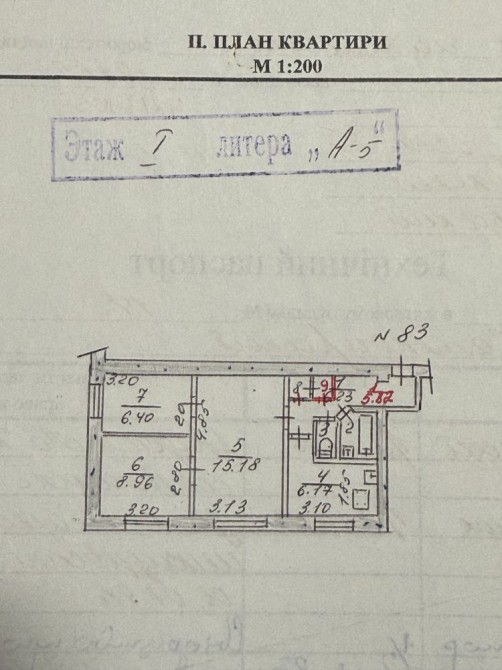 ІІ. ПЛАН КВАРТИРИ
М 1:200
Этаж I литера „А-5“
N 83
3.20
7
6.40
20
4.85
8
9
1
5.82
3
2
5
15.18
6
8.96
2.80
4
6.17
1.85
3.20
3.13
3.10
Технічний паспорт